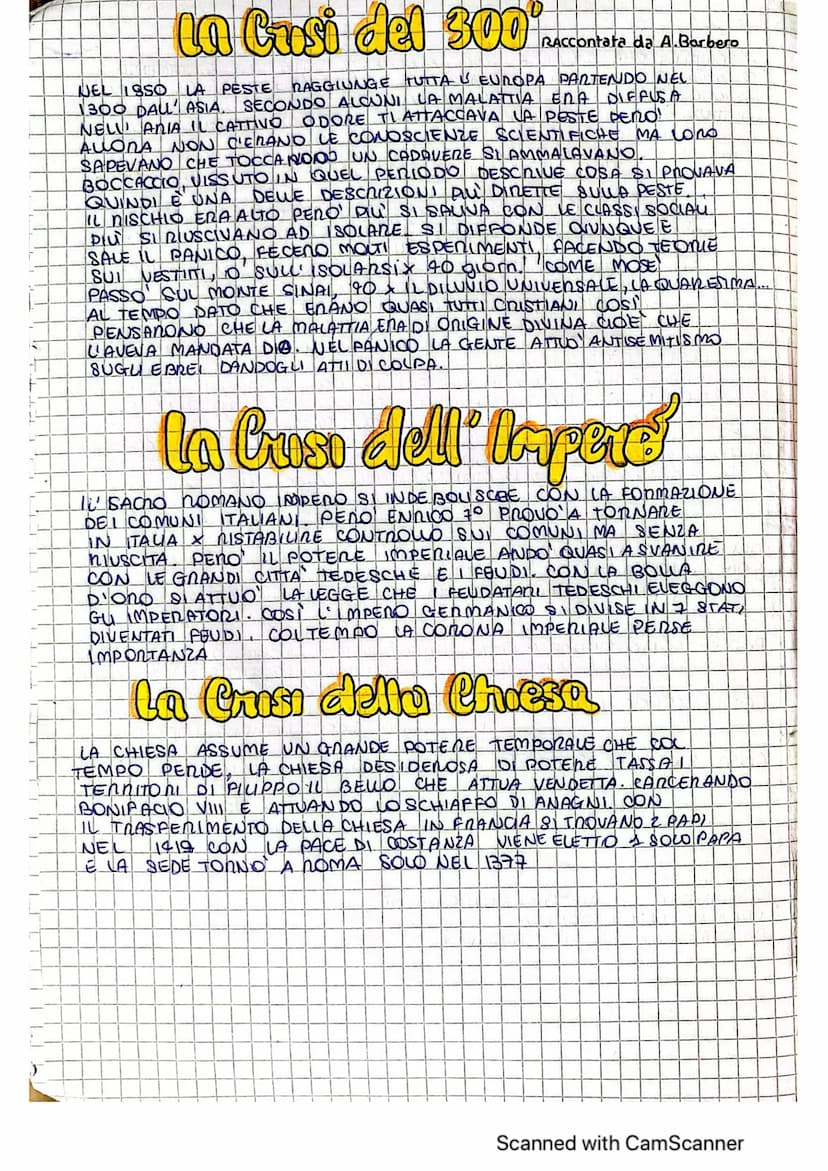 La Crisi del 300"
RAccontata da A.Barbero
NEL 1350 LA PESTE RAGGIUNGE TUTTA L' EUROPA PARTENDO NEL
1300 DALL' ASIA. SECONDO ALCUNI LA MALATTIA ERA DIFFUSA
NELL' ARIA IL CATTIVO ODORE TI ATTACCAVA LA PESTE PERO'
ALLORA NON C'ERANO LE CONOSCIENZE SCIENTIFICHE MA LORO
SAPEVANO CHE TOCCANDO UN CADAVERE SI AMMALAVANO.
BOCCACCIO, VISSUTO IN QUEL PERIODO DESCRIVE COSA SI PROVAVA
QUINDI E' UNA DELLE DESCRIZIONI PIU' DIRETTE SULLA PESTE.
IL RISCHIO ERA ALTO PERO' PIU' SI SALIVA CON LE CLASSI SOCIALI
PIU' SI RIUSCIVANO AD ISOLARE. SI DIFFONDE OVUNQUE E
SALE IL PANICO, FECERO MOLTI ESPERIMENTI, FACENDO TEORIE
SUI VESTITI, O SULL'ISOLARSI X 40 giorni "COME MOSE'
PASSO' SUL MONTE SINAI, 40 X IL DILUVIO UNIVERSALE, LA QUARESIMA...
AL TEMPO DATO CHE ERANO QUASI TUTTI CRISTIANI COSI'
PENSARONO CHE LA MALATTIA ERA DI ORIGINE DIVINA CIOE' CHE
L'AVEVA MANDATA DIO. NEL PANICO LA GENTE ATTUO' ANTISEMITISMO
SUGLI EBREI DANDOGLI ATTI DI COLPA.
La Crisi dell' Impero
IL' SACRO ROMANO IMPERO SI INDEBOLISCEE CON LA FORMAZIONE
DEI COMUNI ITALIANI. PERO' ENRICO 7° PROVO' A TORNARE
IN ITALIA X RISTABILIRE CONTROLLO SUI COMUNI MA SENZA
RIUSCITA. PERO' IL POTERE IMPERIALE ANDO' QUASI A SVANIRE
CON LE GRANDI CITTA' TEDESCHE E I FEUDI. CON LA BOLLA
D'ORO SI ATTUO' LA LEGGE CHE I FEUDATARI TEDESCHI ELEGGONO
GLI IMPERATORI. COSI' L'IMPERO GERMANICO SI DIVISE IN 7 STATI
DIVENTATI FEUDI. COL TEMPO LA CORONA IMPERIALE PERSE
IMPORTANZA
La Crisi della Chiesa
LA CHIESA ASSUME UN GRANDE POTERE TEMPORALE CHE COL
TEMPO PERDE, LA CHIESA DESIDEROSA DI POTERE TASSA I
TERRITORI DI FILIPPO IL BELLO CHE ATTUA VENDETTA. CARCERANDO
BONIFACIO VIII E ATTUANDO LO SCHIAFFO DI ANAGNI. CON
IL TRASFERIMENTO DELLA CHIESA IN FRANCIA SI TROVANO 2 PAPI
NEL 1414 CON LA PACE DI COSTANZA VIENE ELETTO 1 SOLO PAPA
E LA SEDE TORNO' A ROMA SOLO NEL 1377
Scanned with CamScanner